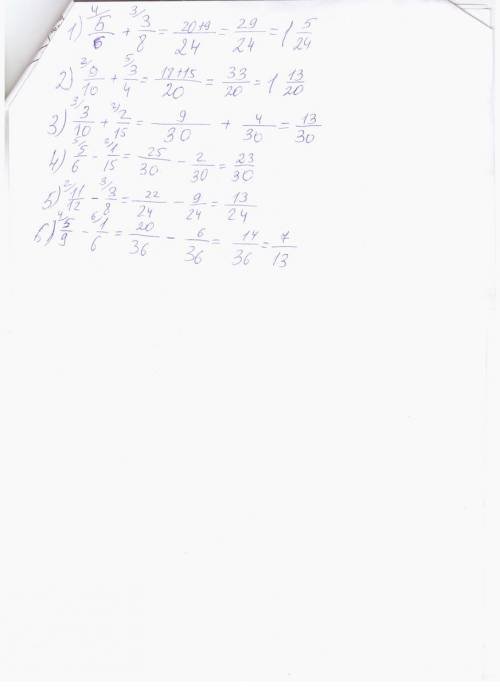 1) 4/ 5/6 + 3/ 3/8 = 20+9/24 = 29/24 = 1 5/24
2) 2/ 9/10 + 5/ 3/4 = 18+15/20 = 33/20 = 1 13/20
3) 3/ 3/10 + 2/ 2/15 = 9/30 + 4/30 = 13/30
4) 5/ 5/6 - 2/ 1/15 = 25/30 - 2/30 = 23/30
5) 2/ 11/12 - 3/ 3/8 = 22/24 - 9/24 = 13/24
6) 4/ 5/9 - 6/ 1/6 = 20/36 - 6/36 = 14/36 = 7/13